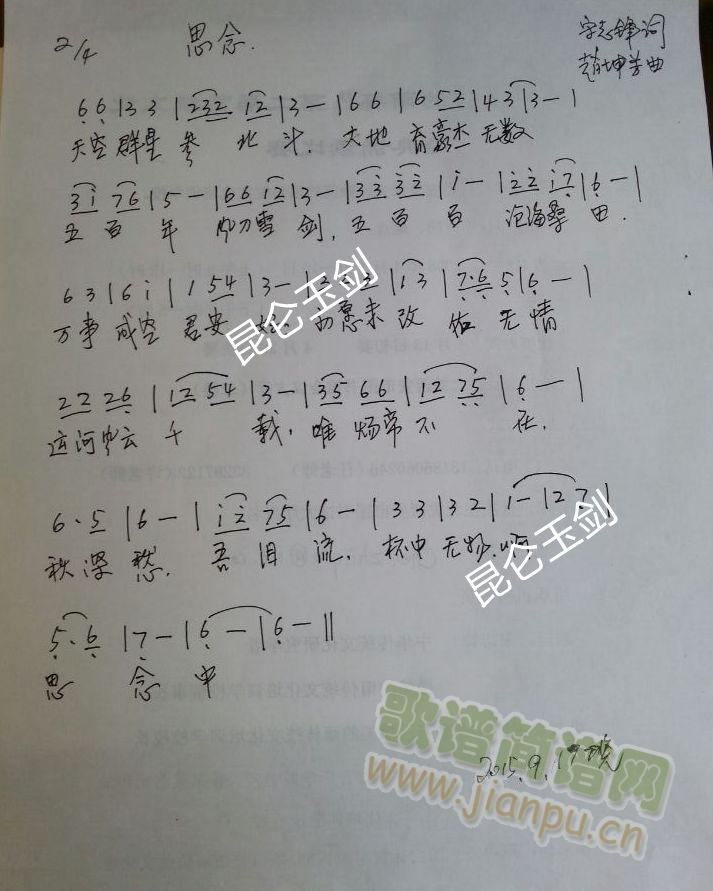 2/4 思念.
宋志锋词
赵坤芳曲
6 6 | 3 3 | 232 12 | 3 — | 6 6 | 6 52 | 4 3 | 3 — |
天空 群星 参 北 斗. 大地 育豪杰 无数
3i 76 | 5 — | 66 12 | 3 — | 33 32 | i — | 22 i7 | 6 — |
五 百 年 雪 剑, 五 百 百 沧海桑 田.
6 3 | 6 i | 1 54 | 3 — | | 1 3 | 7·6 5 | 6 — |
万事 成空 君安 初愿未 改 佑 无 情
22 26 | 12 54 | 3 — | 35 66 | 12 75 | 6 — |
运河 千 载, 唯 炀帝 不 在.
6 · 5 | 6 — | i2 75 | 6 — | 3 3 | 3 2 | i — | 12 7 |
秋 深 愁. 吾 泪 流. 杯中 无物. 啊
5 · 6 | 7 — | 6 — | 6 — ||
思 念 中
2015.9.17 晓
昆仑玉剑
昆仑玉剑
歌谱简谱网
www.jianpu.cn